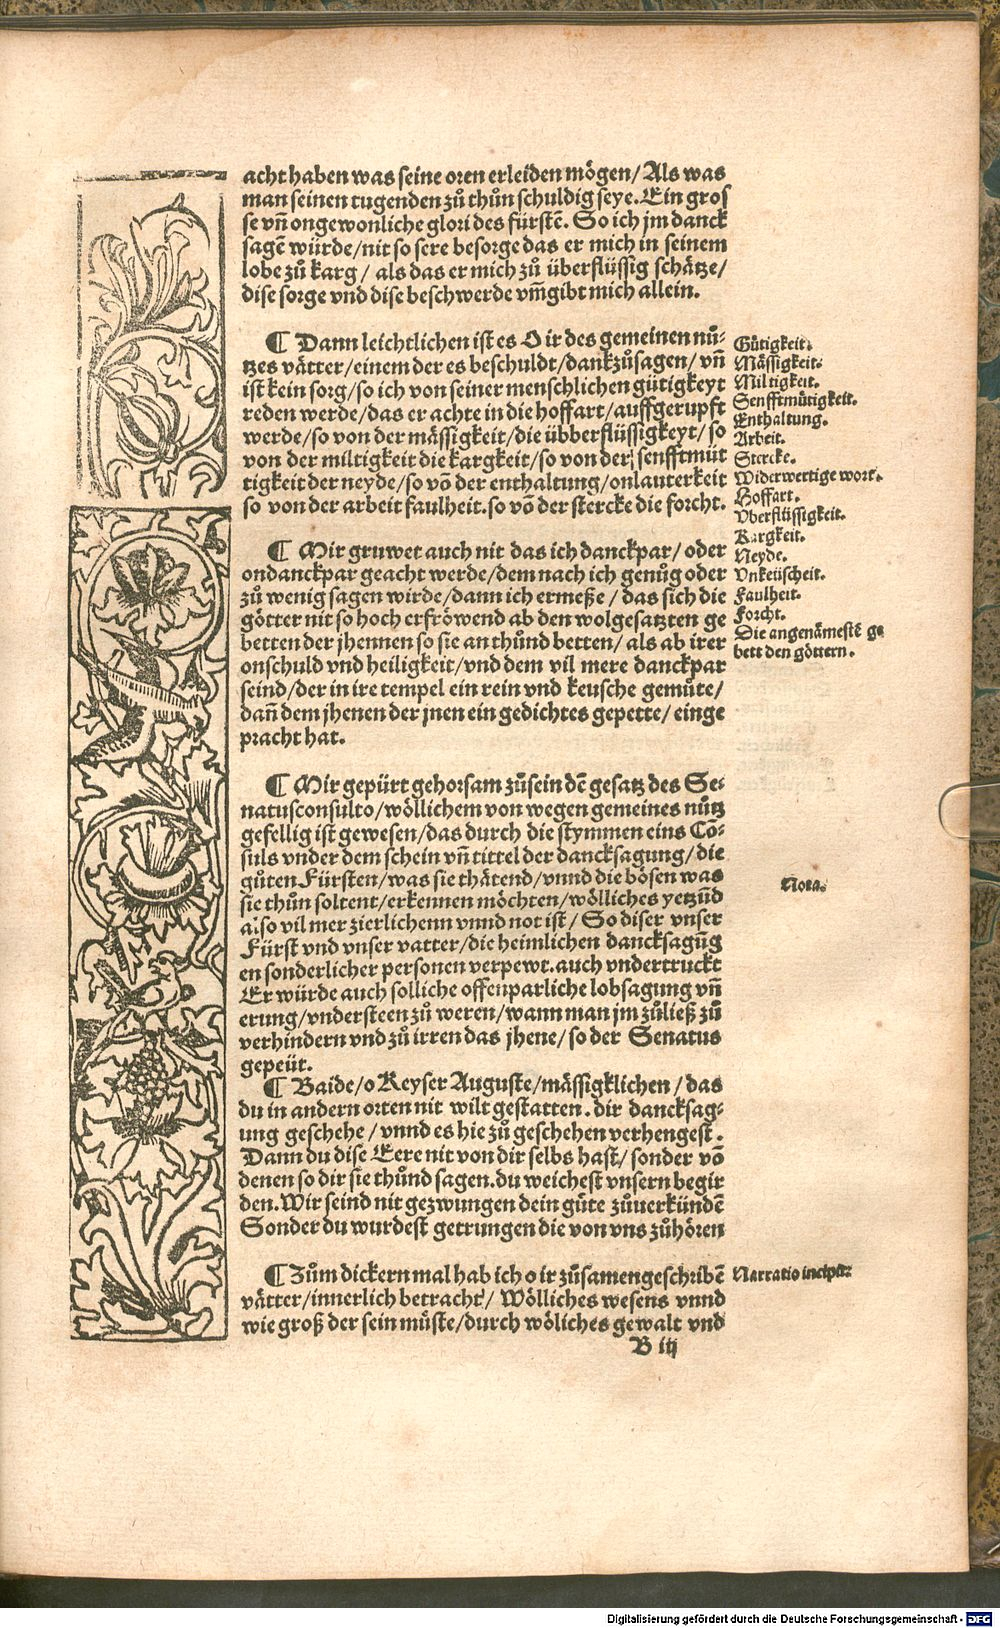 acht haben was seine oren erleiden mögen/ Als was
man seinen tugenden zů thůn schuldig seye. Ein gros
se vñ ongewonliche glori des fürstẽ. So ich jm danck
sagẽ würde/ nit so sere besorge das er mich in seinem
lobe zů karg/ als das er mich zů überflüssig schätze/
dise sorge vnd dise beschwerde vm̃gibt mich allein.
¶ Dann leichtlichen ist es O ir des gemeinen nů⸗
tzes vätter/ einem der es beschuldt/ dankzůsagen/ vñ
ist kein sorg/ so ich von seiner menschlichen gütigkeyt
reden werde/ das er achte in die hoffart/ auffgerupft
werde/ so von der mässigkeit/ die übberflüssigkeyt/ so
von der miltigkeit die kargkeit/ so von der senfftmüt
tigkeit der neyde/ so võ der enthaltung/ onlauterkeit
so von der arbeit faulheit. so võ der stercke die forcht.
Gütigkeit.
Mässigkeit.
Miltigkeit.
Senfftmütigkeit.
Enthaltung.
Arbeit.
Stercke.
Widerwertige wort.
Hoffart.
Vberflüssigkeit.
Kargkeit.
Neyde.
Vnkeüscheit.
Faulheit.
Forcht.
Die angenämestẽ ge
bett den göttern.
¶ Mir gruwet auch nit das ich danckpar/ oder
ondanckpar geacht werde/ dem nach ich genůg oder
zů wenig sagen wirde/ dann ich ermeße/ das sich die
götter nit so hoch erfröwend ab den wolgesatzten ge
betten der jhennen so sie an thůnd betten/ als ab irer
onschuld vnd heiligkeit/ vnd dem vil mere danckpar
seind/ der in ire tempel ein rein vnd keusche gemůte/
dañ dem jhenen der jnen ein gedichtes gepette/ einge
pracht hat.
¶ Mir gepürt gehorsam zůsein dẽ gesatz des Se⸗
natusconsulto/ wöllichem von wegen gemeines nůtz
gefellig ist gewesen/ das durch die stymmen eins Cõ⸗
suls vnder dem schein vñ tittel der dancksagung/ die
gůten Fürsten/ was sie thätend/ vnnd die bösen was
sie thůn soltent/ erkennen möchten/ wölliches yetzůd
also vil mer zierlichenn vnnd not ist/ So diser vnser
Fürst vnd vnser vatter/ die heimlichen dancksagũg
en sonderlicher personen verpewt. auch vndertruckt
Er würde auch solliche offenparliche lobsagung vñ
erung/ vndersteen zů weren/ wann man jm zůließ zů
verhindern vnd zů irren das jhene/ so der Senatus
gepeüt.
Nota.
¶ Baide/ o Keyser Auguste/ mässigklichen/ das
du in andern orten nit wilt gestatten. dir dancksag⸗
ung geschehe/ vnnd es hie zů geschehen verhengest.
Dann du dise Eere nit von dir selbs hast/ sonder võ
denen so dir sie thůnd sagen. du weichest vnsern begir
den. Wir seind nit gezwungen dein güte zůuerkündẽ
Sonder du wurdest getrungen die von vns zůhören
¶ Zům dickern mal hab ich o ir zůsamengeschribẽ
vätter/ innerlich betracht/ Wölliches wesens vnnd
wie groß der sein müste/ durch wöliches gewalt vnd
Narratio incipit.
B iij
Digitalisierung gefördert durch die Deutsche Forschungsgemeinschaft - DFG